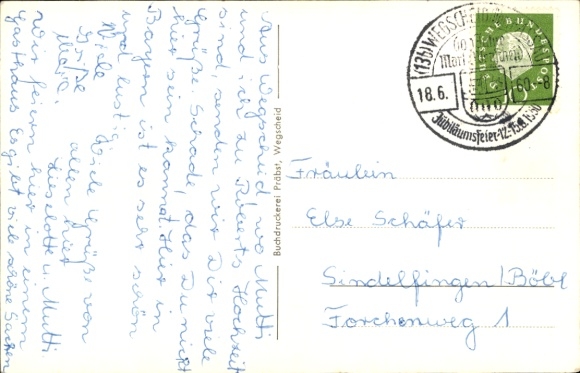 Aus Wegscheid, wo Mutti
und ich zu Roberts Hochzeit
sind, senden wir Dir viele
Grüße. Schade, das Du nicht
hier sein kannst. Hier in
Bayern ist es sehr schön
und lustig.
Viele Grüße von
allen hier
Lieselotte u. Mutti
Wir feiern hier in einem
Gasthaus. Es gibt viele schöne Sachen
Buchdruckerei Pröbst, Wegscheid
(13b) WEGSCHEID
Markt Wegscheid
18.6. 60.-8
Jubiläumsfeier 12.-15.8.1960
DEUTSCHE BUNDESPOST
Fräulein
Else Schäfer
Sindelfingen/Böbl
Forchenweg 1